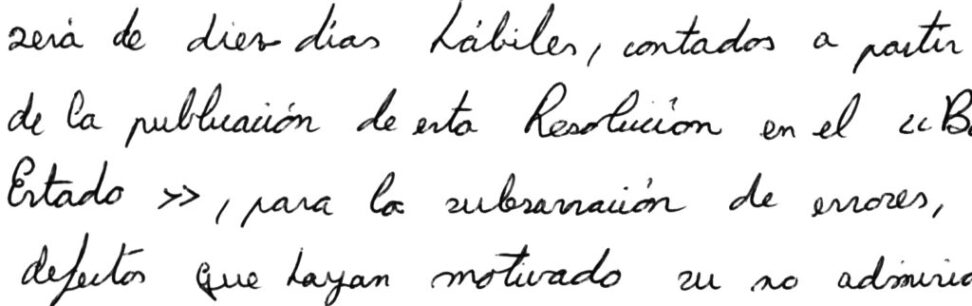 será de diez días hábiles, contados a partir
de la publicación de esta Resolución en el «B
Estado », para la subsanación de errores,
defectos que hayan motivado su no admisió